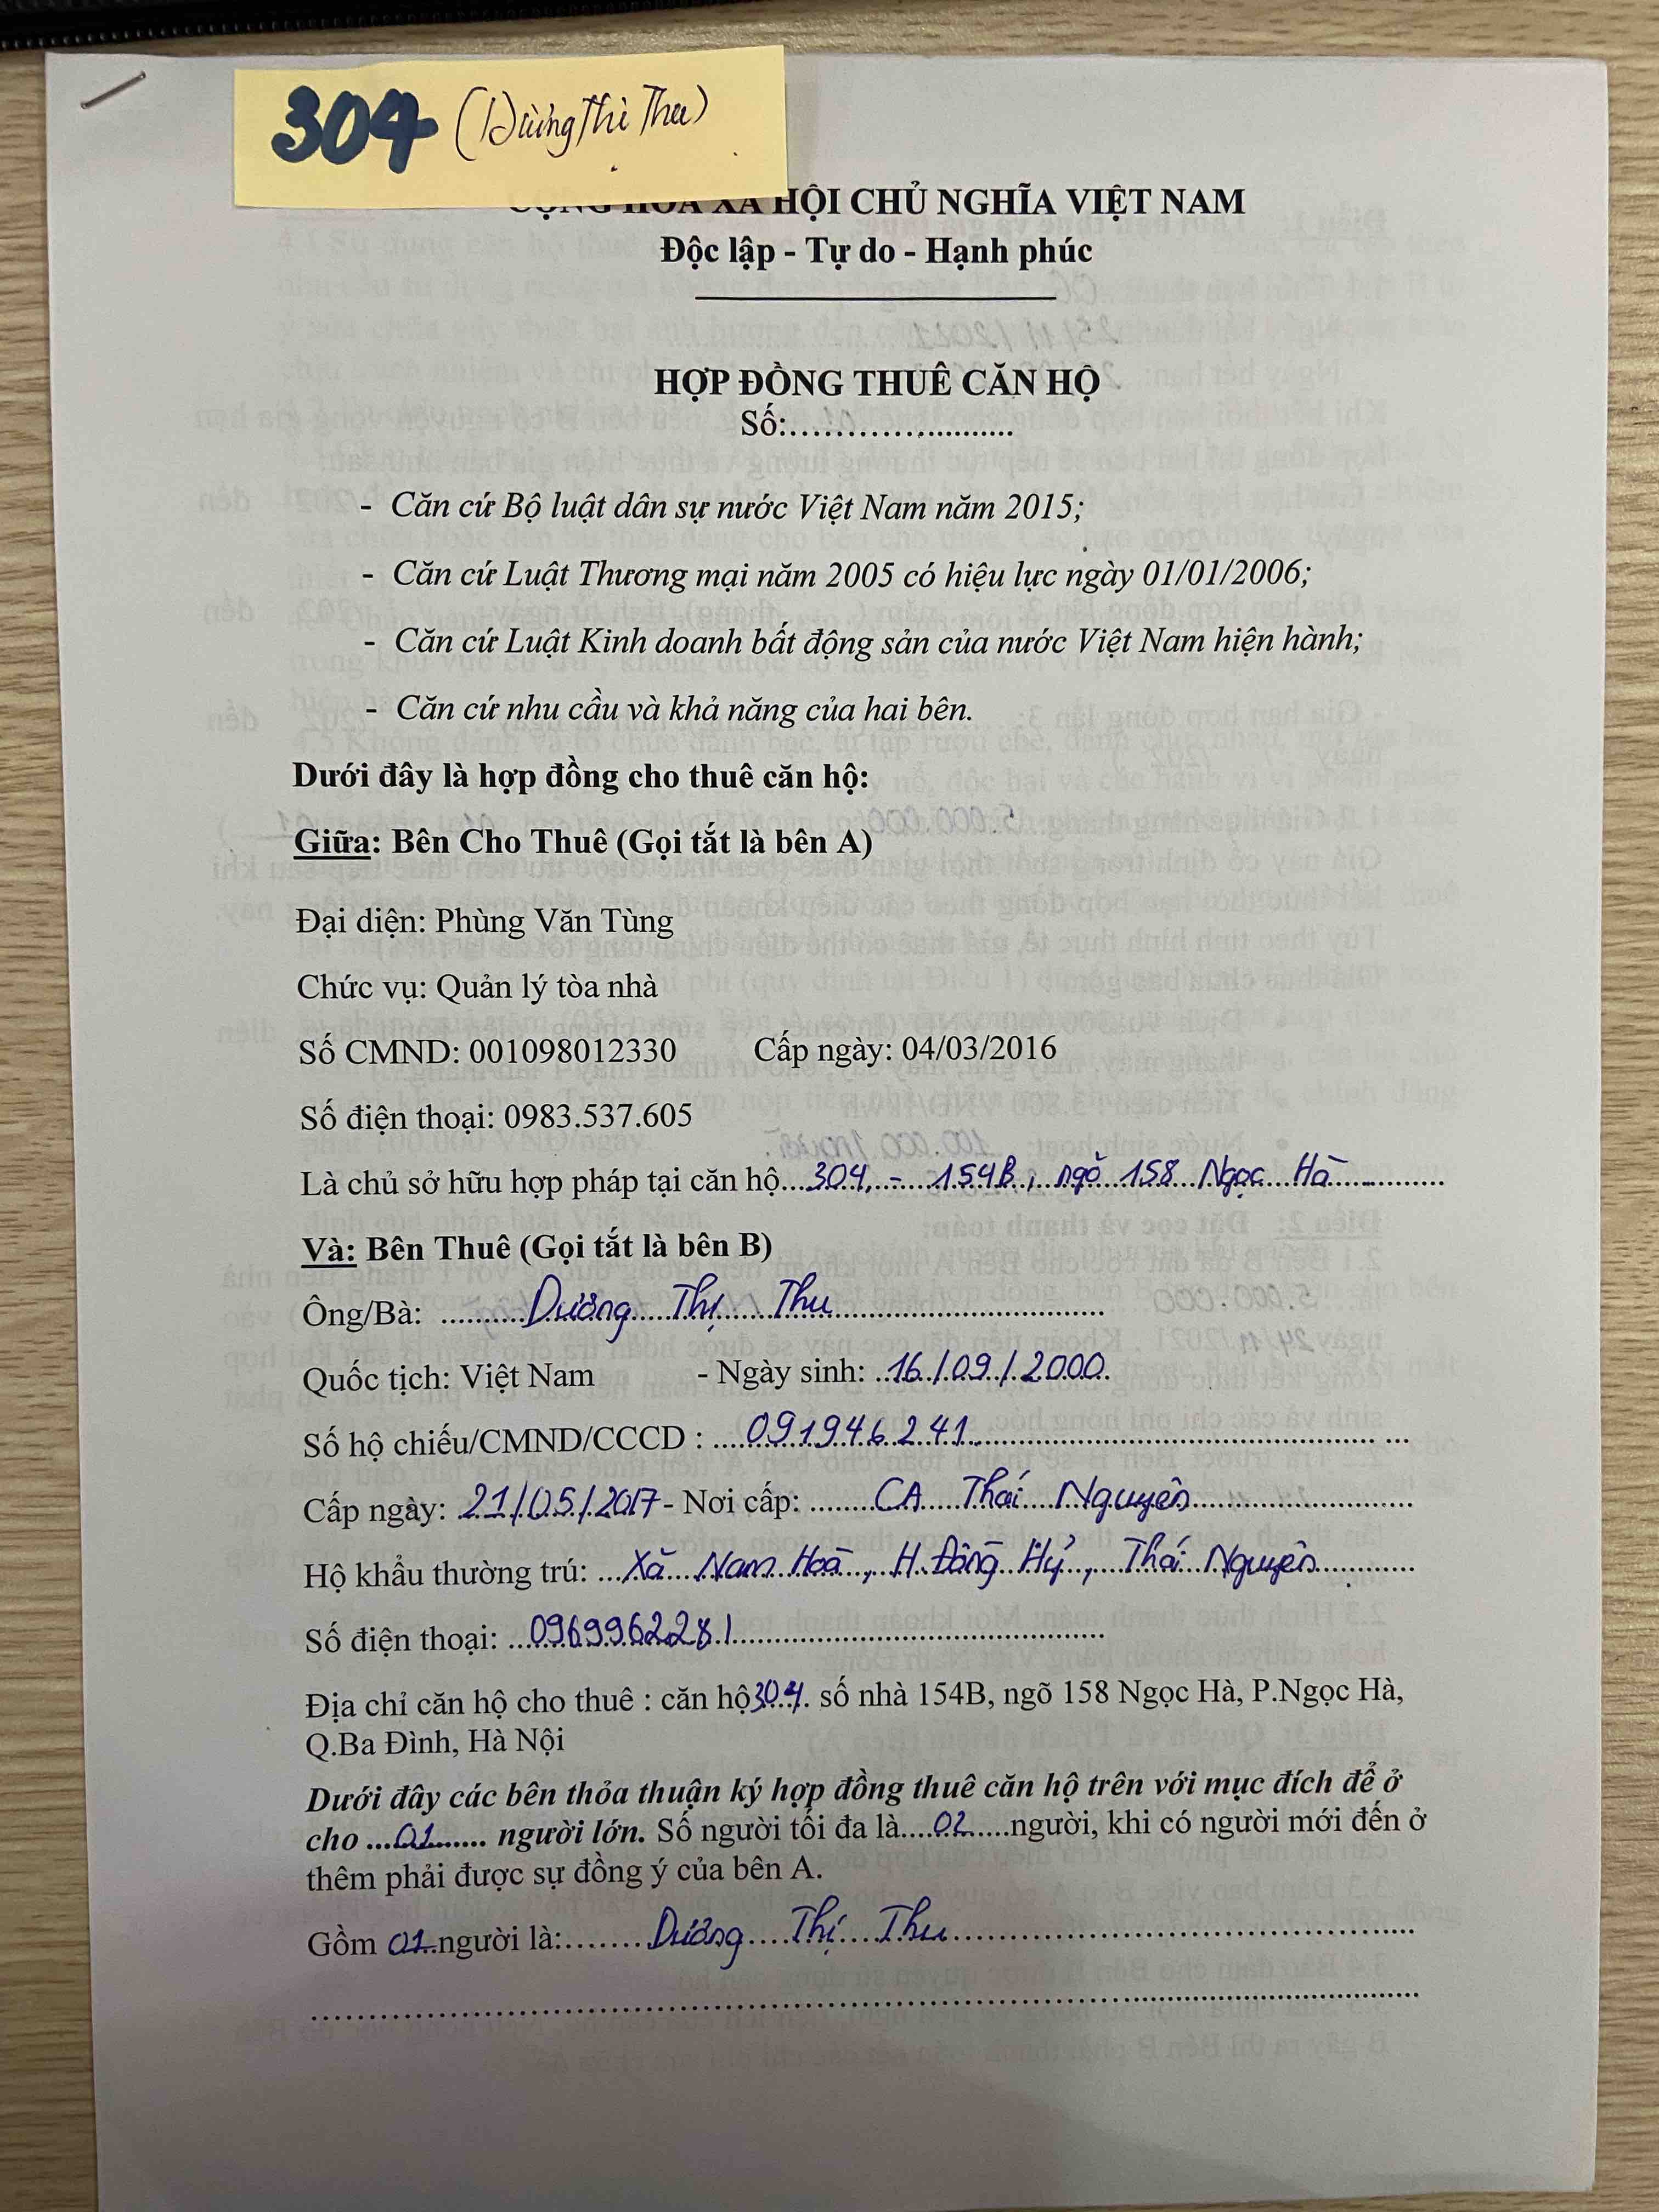 304 (Dương Thị Thu)
CỘNG HÒA XÃ HỘI CHỦ NGHĨA VIỆT NAM
Độc lập - Tự do - Hạnh phúc
HỢP ĐỒNG THUÊ CĂN HỘ
Số:........................
- Căn cứ Bộ luật dân sự nước Việt Nam năm 2015;
- Căn cứ Luật Thương mại năm 2005 có hiệu lực ngày 01/01/2006;
- Căn cứ Luật Kinh doanh bất động sản của nước Việt Nam hiện hành;
- Căn cứ nhu cầu và khả năng của hai bên.
Dưới đây là hợp đồng cho thuê căn hộ:
Giữa: Bên Cho Thuê (Gọi tắt là bên A)
Đại diện: Phùng Văn Tùng
Chức vụ: Quản lý tòa nhà
Số CMND: 001098012330 Cấp ngày: 04/03/2016
Số điện thoại: 0983.537.605
Là chủ sở hữu hợp pháp tại căn hộ...304 - 154B, ngõ 158 Ngọc Hà...........
Và: Bên Thuê (Gọi tắt là bên B)
Ông/Bà: .........Dương Thị Thu..............................
Quốc tịch: Việt Nam - Ngày sinh: ..16/09/2000.
Số hộ chiếu/CMND/CCCD : ....091946241........................................ ...
Cấp ngày: 21/05/2017 - Nơi cấp: ........CA Thái Nguyên.........................
Hộ khẩu thường trú: ...Xã Nam Hoà, H. Đồng Hỷ, Thái Nguyên............
Số điện thoại: ...0969962281.......................................
Địa chỉ căn hộ cho thuê : căn hộ 304. số nhà 154B, ngõ 158 Ngọc Hà, P.Ngọc Hà,
Q.Ba Đình, Hà Nội
Dưới đây các bên thỏa thuận ký hợp đồng thuê căn hộ trên với mục đích để ở
cho ...01....... người lớn. Số người tối đa là....02.....người, khi có người mới đến ở
thêm phải được sự đồng ý của bên A.
Gồm 01 người là:.......Dương Thị Thu..............................................